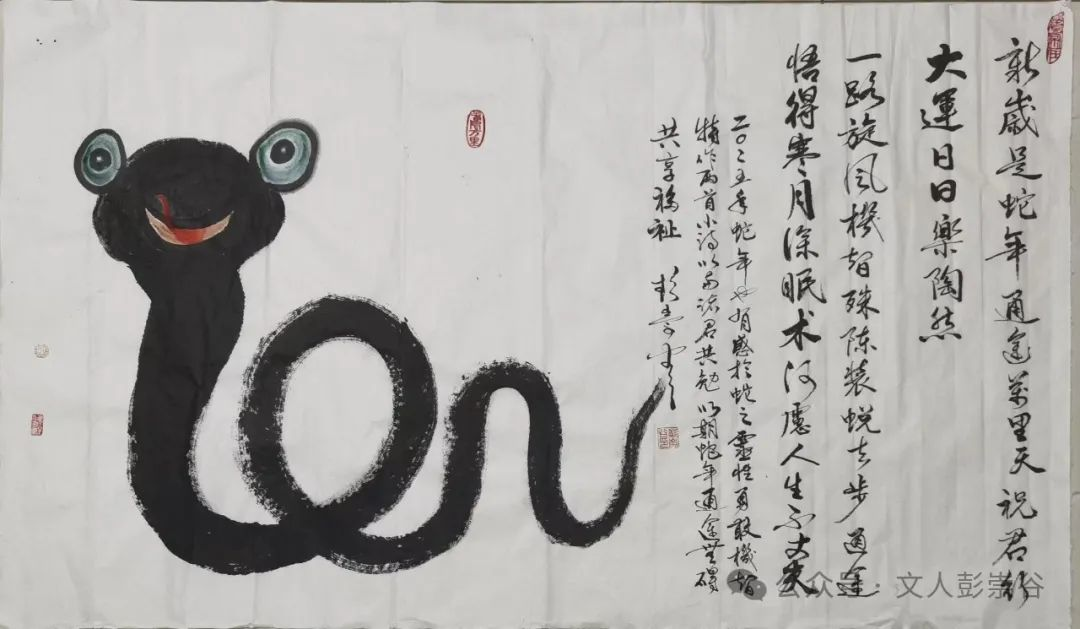 新歲是蛇年通途萬里天祝君行
大運日日樂陶然
一路旋风機智殊陈装蜕去步通途
悟得寒月深眠术何慮人生不丈夫
二〇二五年蛇年也有感於蛇之靈性勇敢機智
特作两首小诗以与诸君共勉以期蛇年通途無礙
共享福祉 彭崇谷
公众号·文人彭崇谷